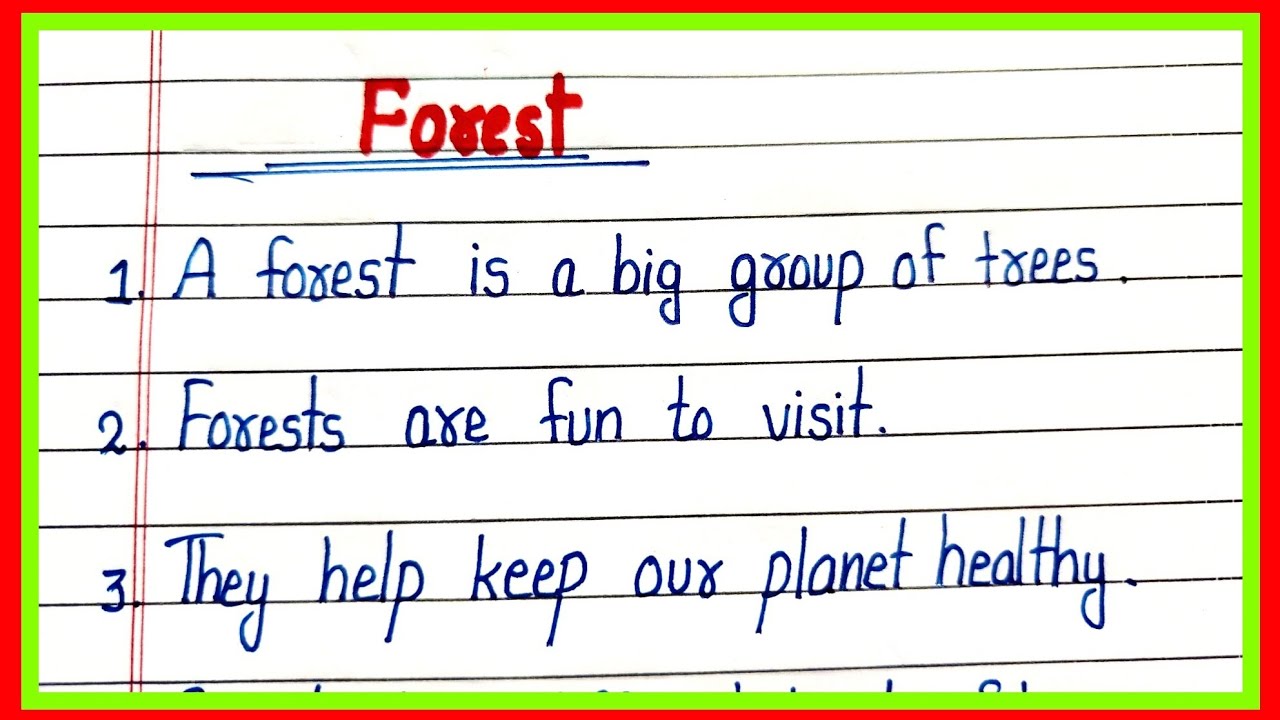 Forest
1. A forest is a big group of trees.
2. Forests are fun to visit.
3. They help keep our planet healthy.